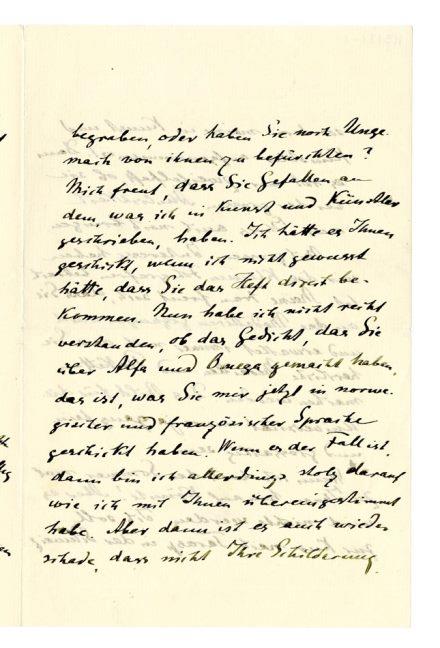 begraben, oder haben Sie noch Unge-
mach von ihnen zu befürchten?
Mich freut, dass Sie Gefallen an
dem, was ich in Kunst und Künstler
geschrieben, haben. Ich hätte es Ihnen
geschickt, wenn ich nicht gewusst
hätte, dass Sie das Heft direct be-
kommen. Nun habe ich nicht recht
verstanden, ob das Gedicht, das Sie
über Alfa und Omega gemacht haben,
das ist, was Sie mir jetzt in norwe-
gischer und französischer Sprache
geschickt haben. Wenn es der Fall ist,
dann bin ich allerdings stolz darauf
wie ich mit Ihnen übereingestimmt
habe. Aber dann ist es auch wieder
schade, dass nicht Ihre Schilderung